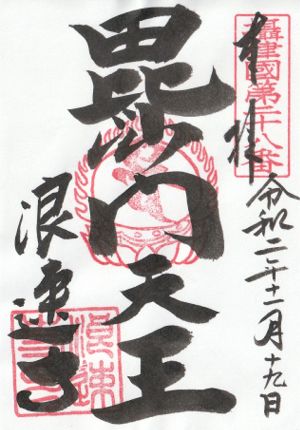 奉拝
攝津國第二十八番
令和二年十二月十九日
毘沙門天王
浪速寺
浪速寺